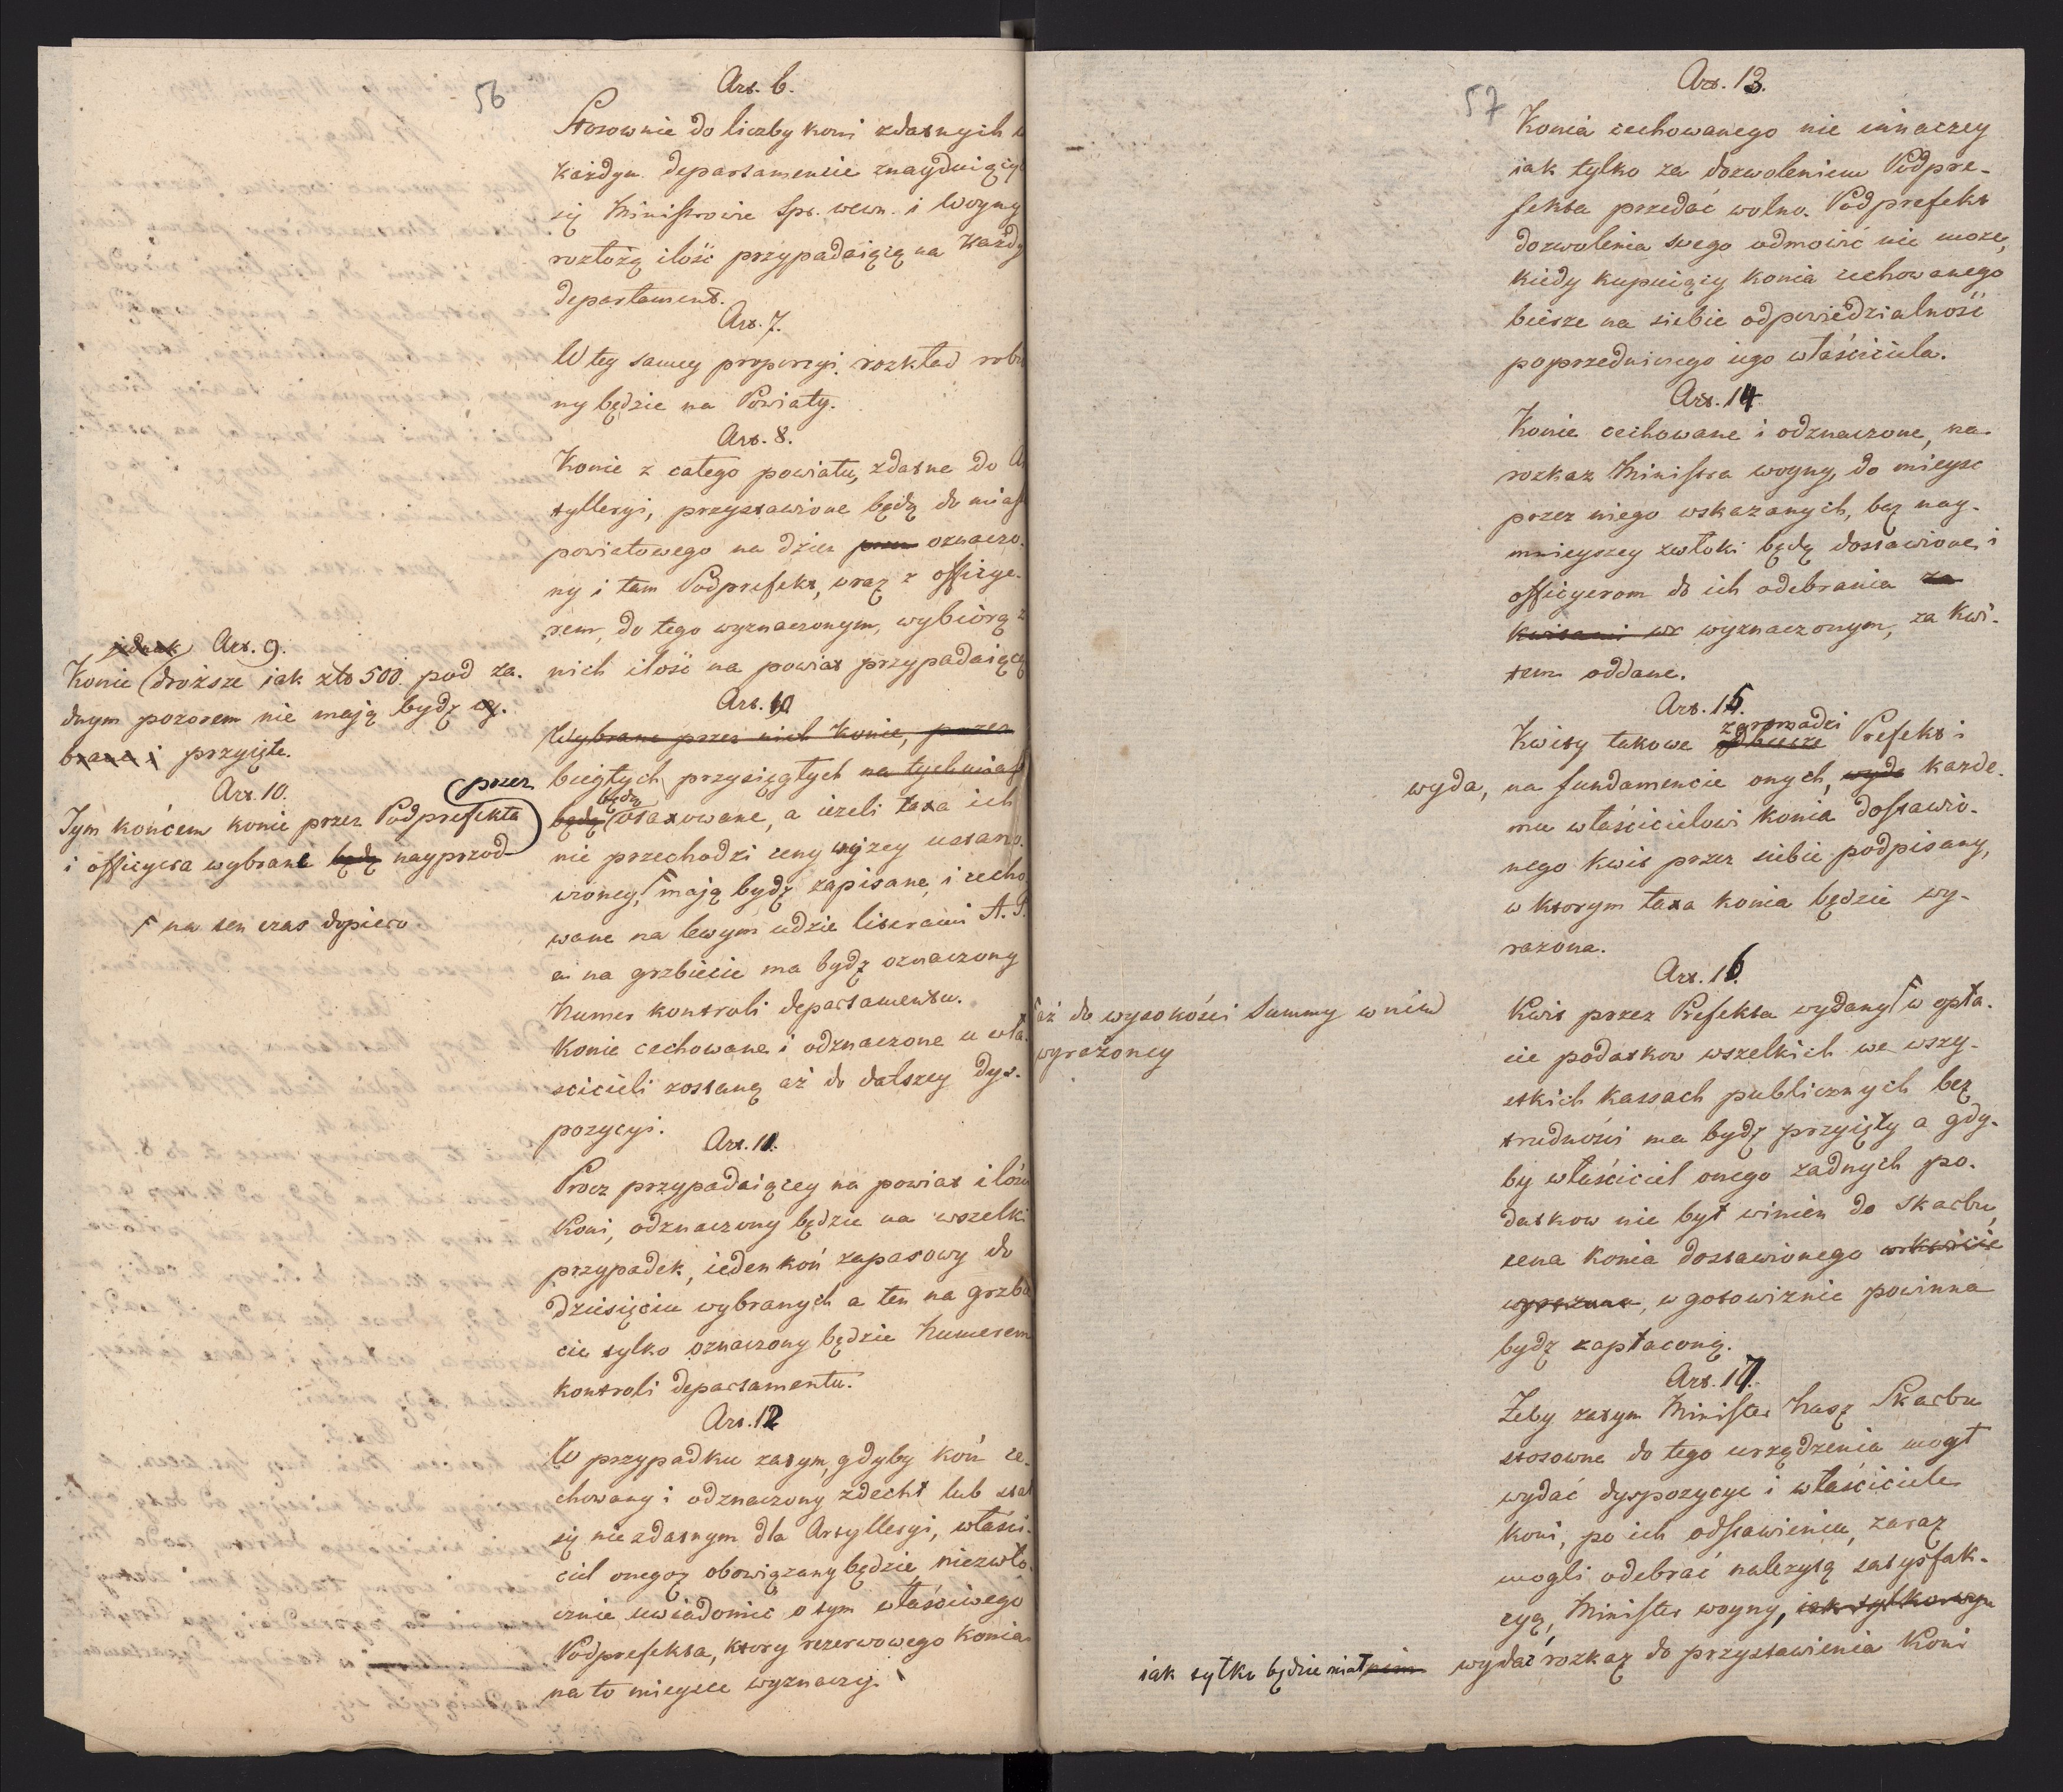 56
Art. 6.
Stosownie do liczby koni zdatnych w
każdym departamencie znayduiący
się Ministrowie Spr. wewn. i Woyny
rozłożą ilość przypadaiącą na każdy
departament.
Art. 7.
W tey samey proporcyi rozkład robio
ny będzie na Powiaty.
Art. 8.
Konie z całego powiatu, zdatne do Ar
tylleryi, przystawione będą do miast
powiatowego na dzień oznaczo-
ny i tam Podprefekt, wraz z officye-
rem, do tego wyznaczonym, wybiorą z
nich ilość na powiat przypadaiącą
jednak Art. 9.
Konie droższe iak złt 500. pod ża-
dnym pozorem nie mają bydź
brane i przyięte.
Art. 10.
Tym końcem konie przez Podprefekta
i officyera wybrane będą nayprzod
przez
na ten czas dopiero
Art. 10
Wybrane przez nich konie, przez
biegłych przysięgłych na tychmiast
będą będą otaxowane, a ieżeli taxa ich
nie przechodzi ceny wyżey ustano-
wioney, mają bydź zapisane, i cecho
wane na lewym udzie literami A. P.
a na grzbiecie ma bydź oznaczony
Numer kontroli departamentu.
Konie cechowane i odznaczone u wła-
ścicieli zostaną aż do dalszey dys-
pozycyi.
Art. 11.
Procz przypadaiącey na powiat ilości
koni, odznaczony będzie na wszelki
przypadek, ieden koń zapasowy do
dziesięciu wybranych a ten na grzbie
cie tylko oznaczony będzie Numerem
kontroli departamentu.
Art. 12
W przypadku zatym, gdyby koń ce-
chowany i odznaczony zdechł lub stał
się niezdatnym dla Artylleryi, właści-
ciel onegoż obowiązany będzie niezwło-
cznie uwiadomić o tym właściwego
Podprefekta, ktory rezerwowego konia
na to mieysce wyznaczy.
57
Art. 13.
Konia cechowanego nie innaczey
iak tylko za dozwoleniem Podpre-
fekta przedać wolno. Podprefekt
dozwolenia swego odmowić nie może,
kiedy kupuiący konia cechowanego
bierze na siebie odpowiedzialność
poprzedniczego iego właściciela.
Art. 14.
Konie cechowane i odznaczone, na
rozkaz Ministra woyny, do mieysc
przez niego wskazanych, bez nay-
mnieyszey zwłoki będą dostawione i
officyerom do ich odebrania za
kwitami wyznaczonym, za kwi-
tem oddane.
Art. 15.
Kwity takowe zgromadzi Prefekt i
wyda, na fundamencie onych, wyda każde-
mu właścicielowi konia dostawio-
nego kwit przez siebie podpisany,
w ktorym taxa konia będzie wy-
rażona.
Art. 16.
Kwit przez Prefekta wydany w opła-
cie podatkow wszelkich we wszy-
stkich kassach publicznych bez
trudności ma bydź przyięty a gdy-
by właściciel onego żadnych po-
datkow nie był winien do skarbu,
cena konia dostawionego w kwicie
wyrażona, w gotowiznie powinna
bydź zapłaconą.
aż do wysokości Summy w nim
wyrażoney
Art. 17.
Żeby zatym Minister Nasz Skarbu
stosowne do tego urządzenia mogł
wydać dyspozycye i właściciele
koni, po ich odstawieniu, zaraz
mogli odebrać należytą satysfak-
cyą, Minister woyny, iak tylko
iak tylko będzie miał wydać rozkaz do przystawienia koni